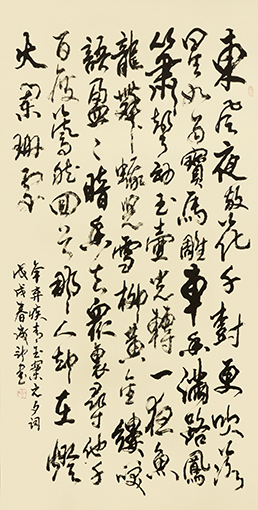 東風夜放花千樹更吹落
星如雨寶馬雕車香滿路鳳
簫聲動玉壺光轉一夜魚
龍舞蛾兒雪柳黃金縷笑
語盈々暗香去眾裏尋他千
百度驀然回首那人卻在燈
火闌珊處
辛弃疾青玉案元夕詞
戊戌春書